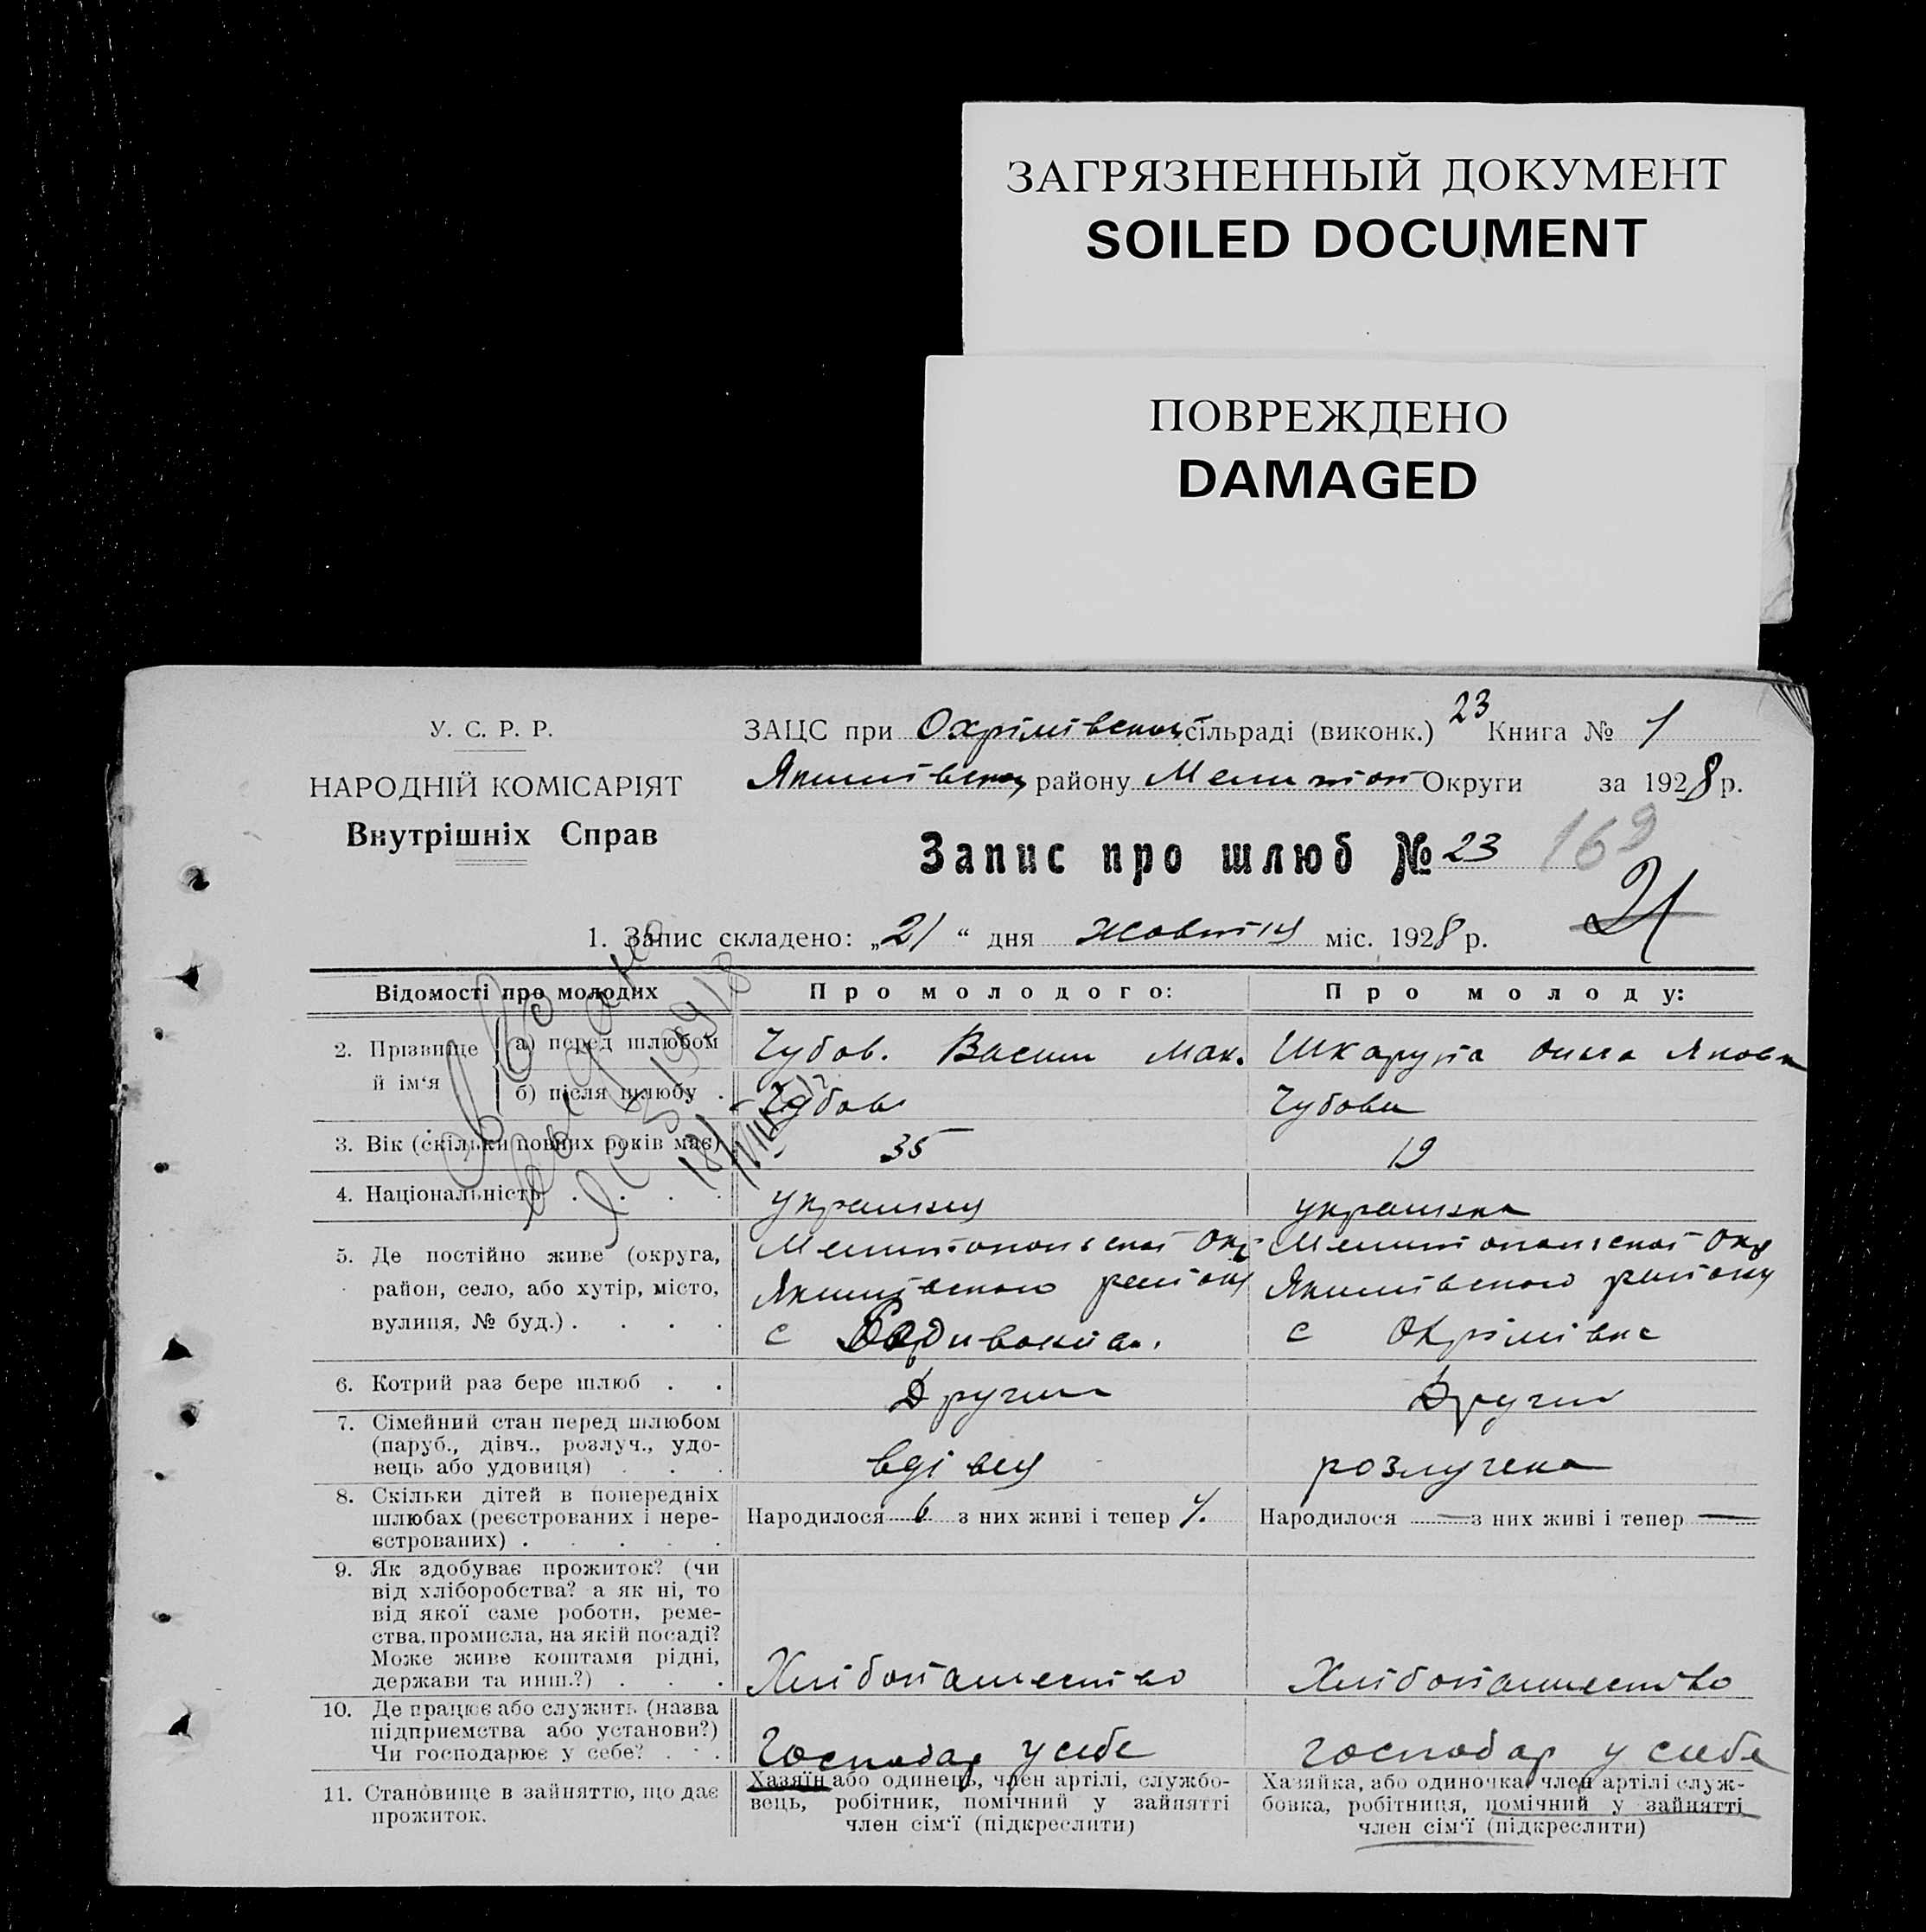 ЗАГРЯЗНЕННЫЙ ДОКУМЕНТ
SOILED DOCUMENT
ПОВРЕЖДЕНО
DAMAGED
У. С. Р. Р.
НАРОДНІЙ КОМІСАРІЯТ
Внутрішніх Справ
ЗАЦС при Охрімівській сільраді (виконк.) 23 Книга № 1
району Мелітоп Округи за 1928 р.
Запис про шлюб № 23 169
21
1. Запис складено: „21“ дня жовтня міс. 1928 р.
Відомості про молодих
Про молодого:
Про молоду:
2. Прізвище й ім'я
а) перед шлюбом
Чубов. Васили Мак.
Шкарупа Ольга Яковл
б) після шлюбу .
Чубов
Чубова
3. Вік (скільки повних років має)
35
19
4. Національність . . . .
украинец
украинка
5. Де постійно живе (округа,
район, село, або хутір, місто,
вулиця, № буд.) . . . .
Мелитопольскої Окр
Якимівского району
с
Мелитопольскої Окр
Якимівского району
с Охрімівка
6. Котрий раз бере шлюб . .
Другий
Другий
7. Сімейний стан перед шлюбом
(паруб., дівч., розлуч., удо-
вець або удовиця) . . .
вдівец
розлучена
8. Скільки дітей в попередніх
шлюбах (реєстрованих і нере-
єстрованих) . . . . .
Народилося 6 з них живі і тепер 4.
Народилося — з них живі і тепер —
9. Як здобуває прожиток? (чи
від хліборобства? а як ні, то
від якої саме роботи, реме-
ства, промисла, на якій посаді?
Може живе коштами рідні,
держави та инш.?) . . .
Хлібопашество
Хлібопашество
10. Де працює або служить (назва
підприємства або установи?)
Чи господарює у себе? . . .
Господар у себе
господар у себе
11. Становище в зайняттю, що дає
прожиток.
Хазяїн або одинець, член артілі, службо-
вець, робітник, помічний у зайнятті
член сім'ї (підкреслити)
Хазяйка, або одиночка член артілі служ-
бовка, робітниця, помічний у зайнятті
член сім'ї (підкреслити)